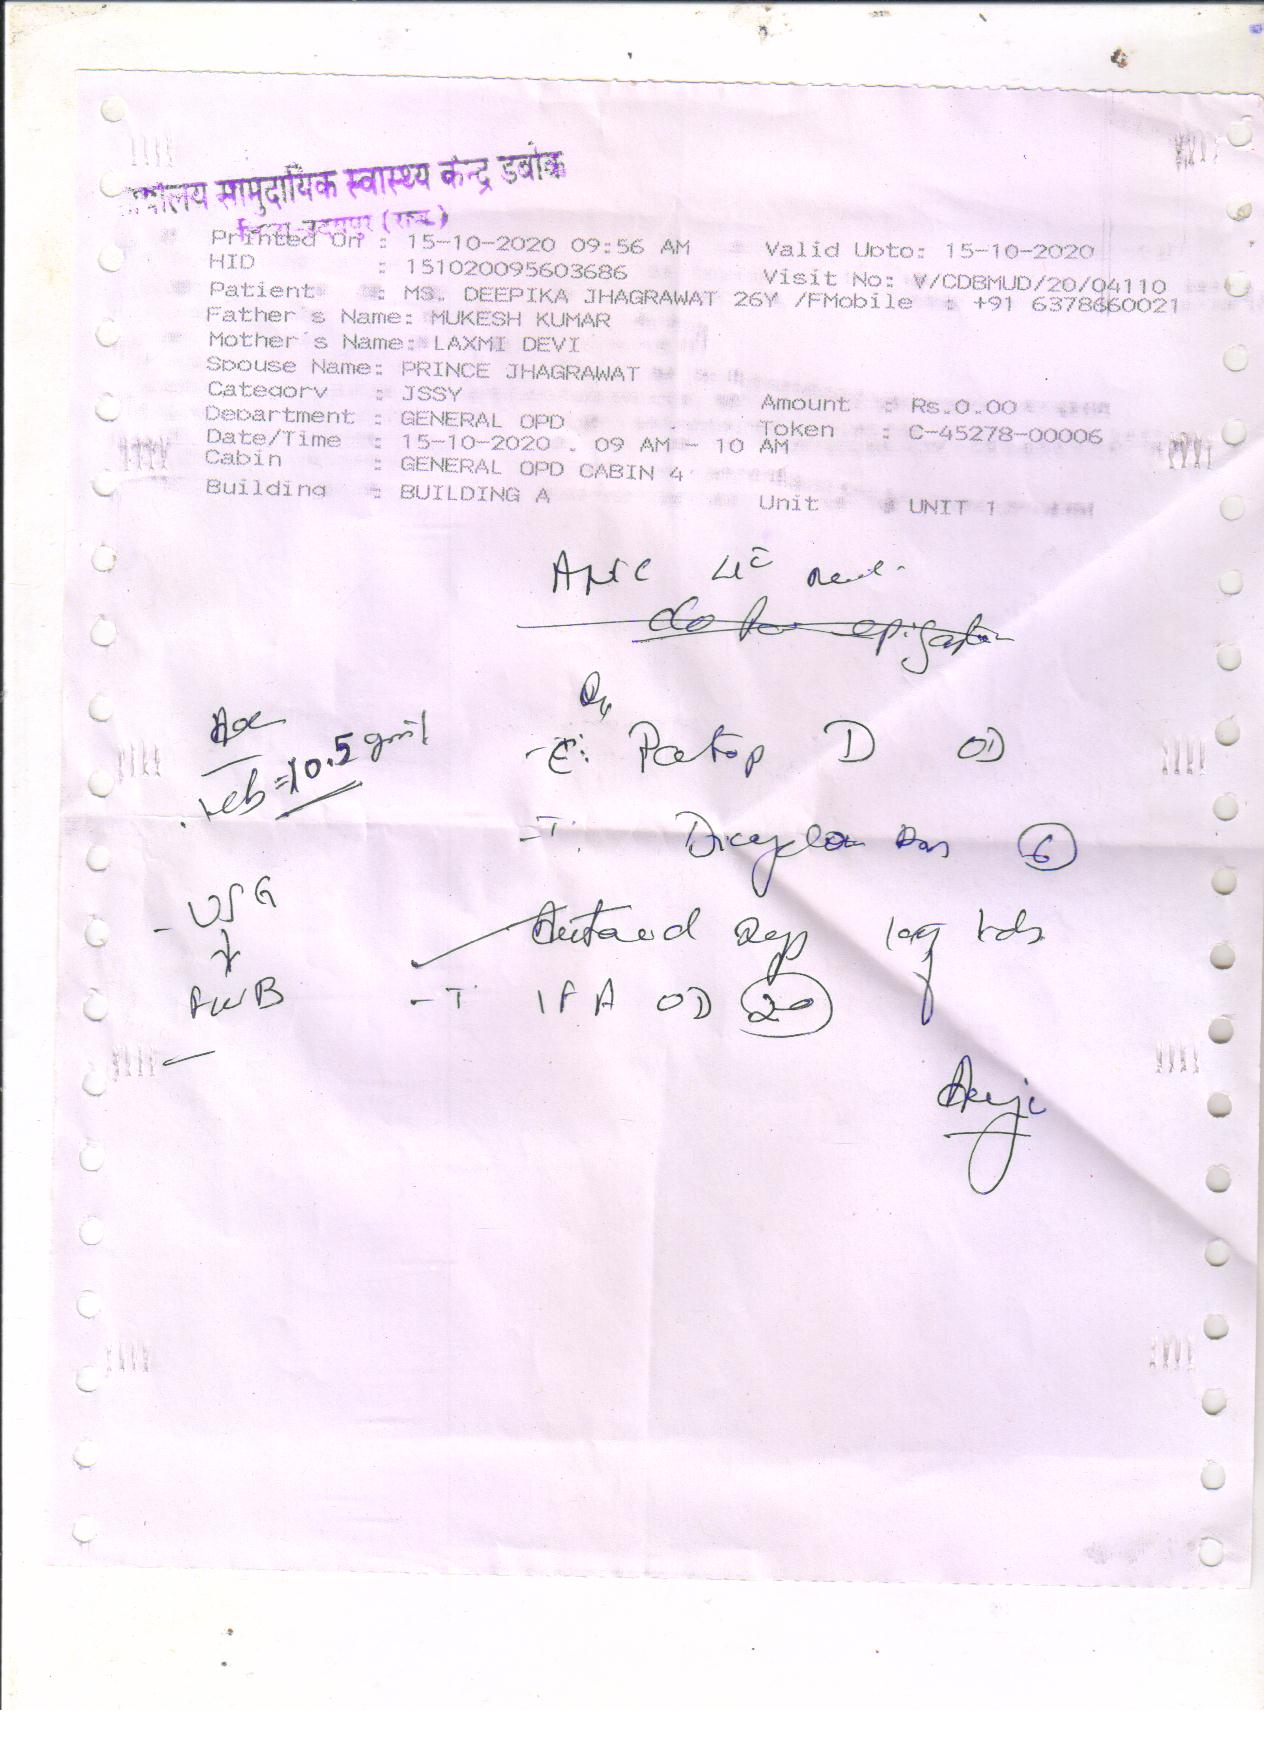 कार्यालय सामुदायिक स्वास्थ्य केन्द्र डबोक
उदयपुर (राज.)
Printed On : 15-10-2020 09:56 AM Valid Upto: 15-10-2020
HID : 151020095603686 Visit No: V/CDBMUD/20/04110
Patient : MS. DEEPIKA JHAGRAWAT 26Y /FMobile : +91 6378660021
Father s Name: MUKESH KUMAR
Mother s Name: LAXMI DEVI
Spouse Name: PRINCE JHAGRAWAT
Category : JSSY Amount : Rs.0.00
Department : GENERAL OPD Token : C-45278-00006
Date/Time : 15-10-2020 . 09 AM - 10 AM
Cabin : GENERAL OPD CABIN 4
Building : BUILDING A Unit : UNIT 1
ANC
Rx
- C: Pantop D OD
=10.5 gm%
- T: Dicyclo 6
- USG
Antacid Syp tds
FWB
- T IFA OD 20